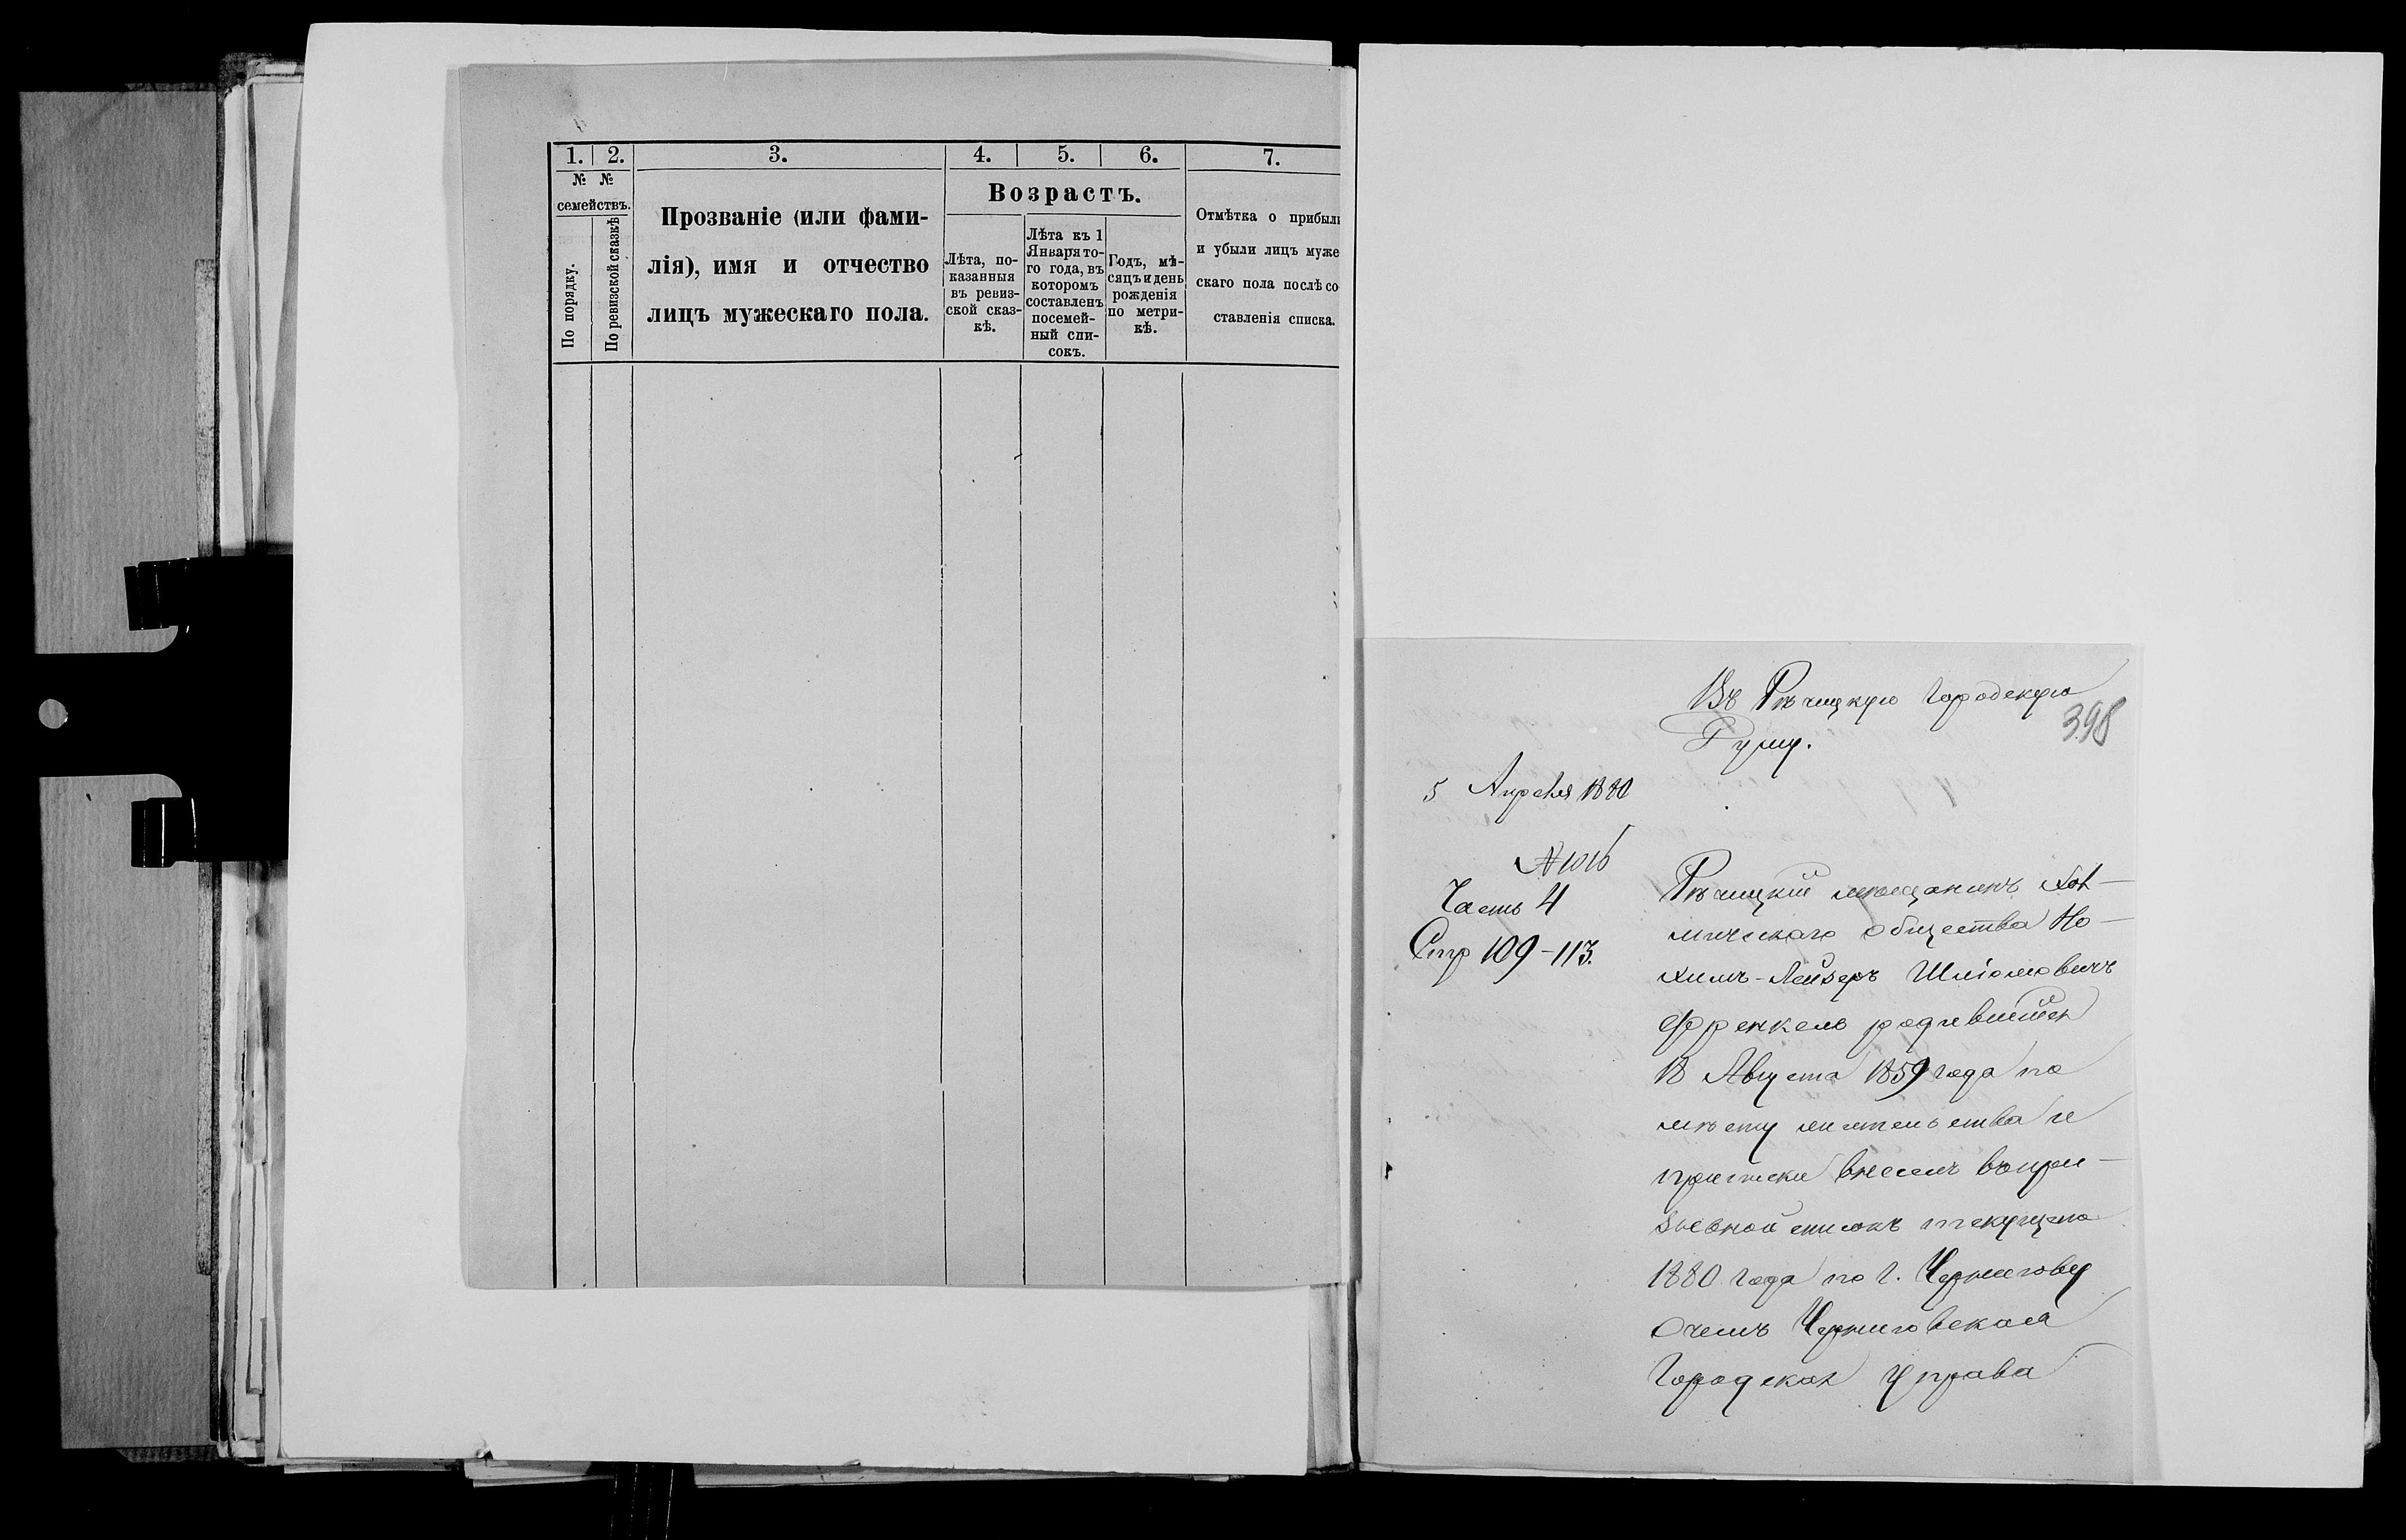 1. 2. 3. 4. 5. 6. 7.
№ №
семействъ.
По порядку.
По ревизской сказкѣ
Прозваніе (или фами-
лія), имя и отчество
лицъ мужескаго пола.
Возрастъ.
Лѣта, по-
казанныя
въ ревиз-
ской сказ-
кѣ.
Лѣта къ 1
Января то-
го года, въ
которомъ
составленъ
посемей-
ный спи-
сокъ.
Годъ, мѣ-
сяцъ и день
рожденія
по метри-
кѣ.
Отмѣтка о прибыли
и убыли лицъ муже
скаго пола послѣ со
ставленія списка.
Въ Рѣчицкую Городскую
Думу.
398
5 Апреля 1880
№ 1016
Часть 4
Стр 109-113.
Рѣчицкій мѣщанинъ Хол-
мичскаго общества Но-
химъ-Лейзеръ Шліомовичъ
Френкель родившійся
18 Августа 1859 года по
мѣсту жительства и
приписки внесенъ въ при-
зывной списокъ текущаго
1880 года по г. Чернигову
О чемъ Черниговская
Городская Управа